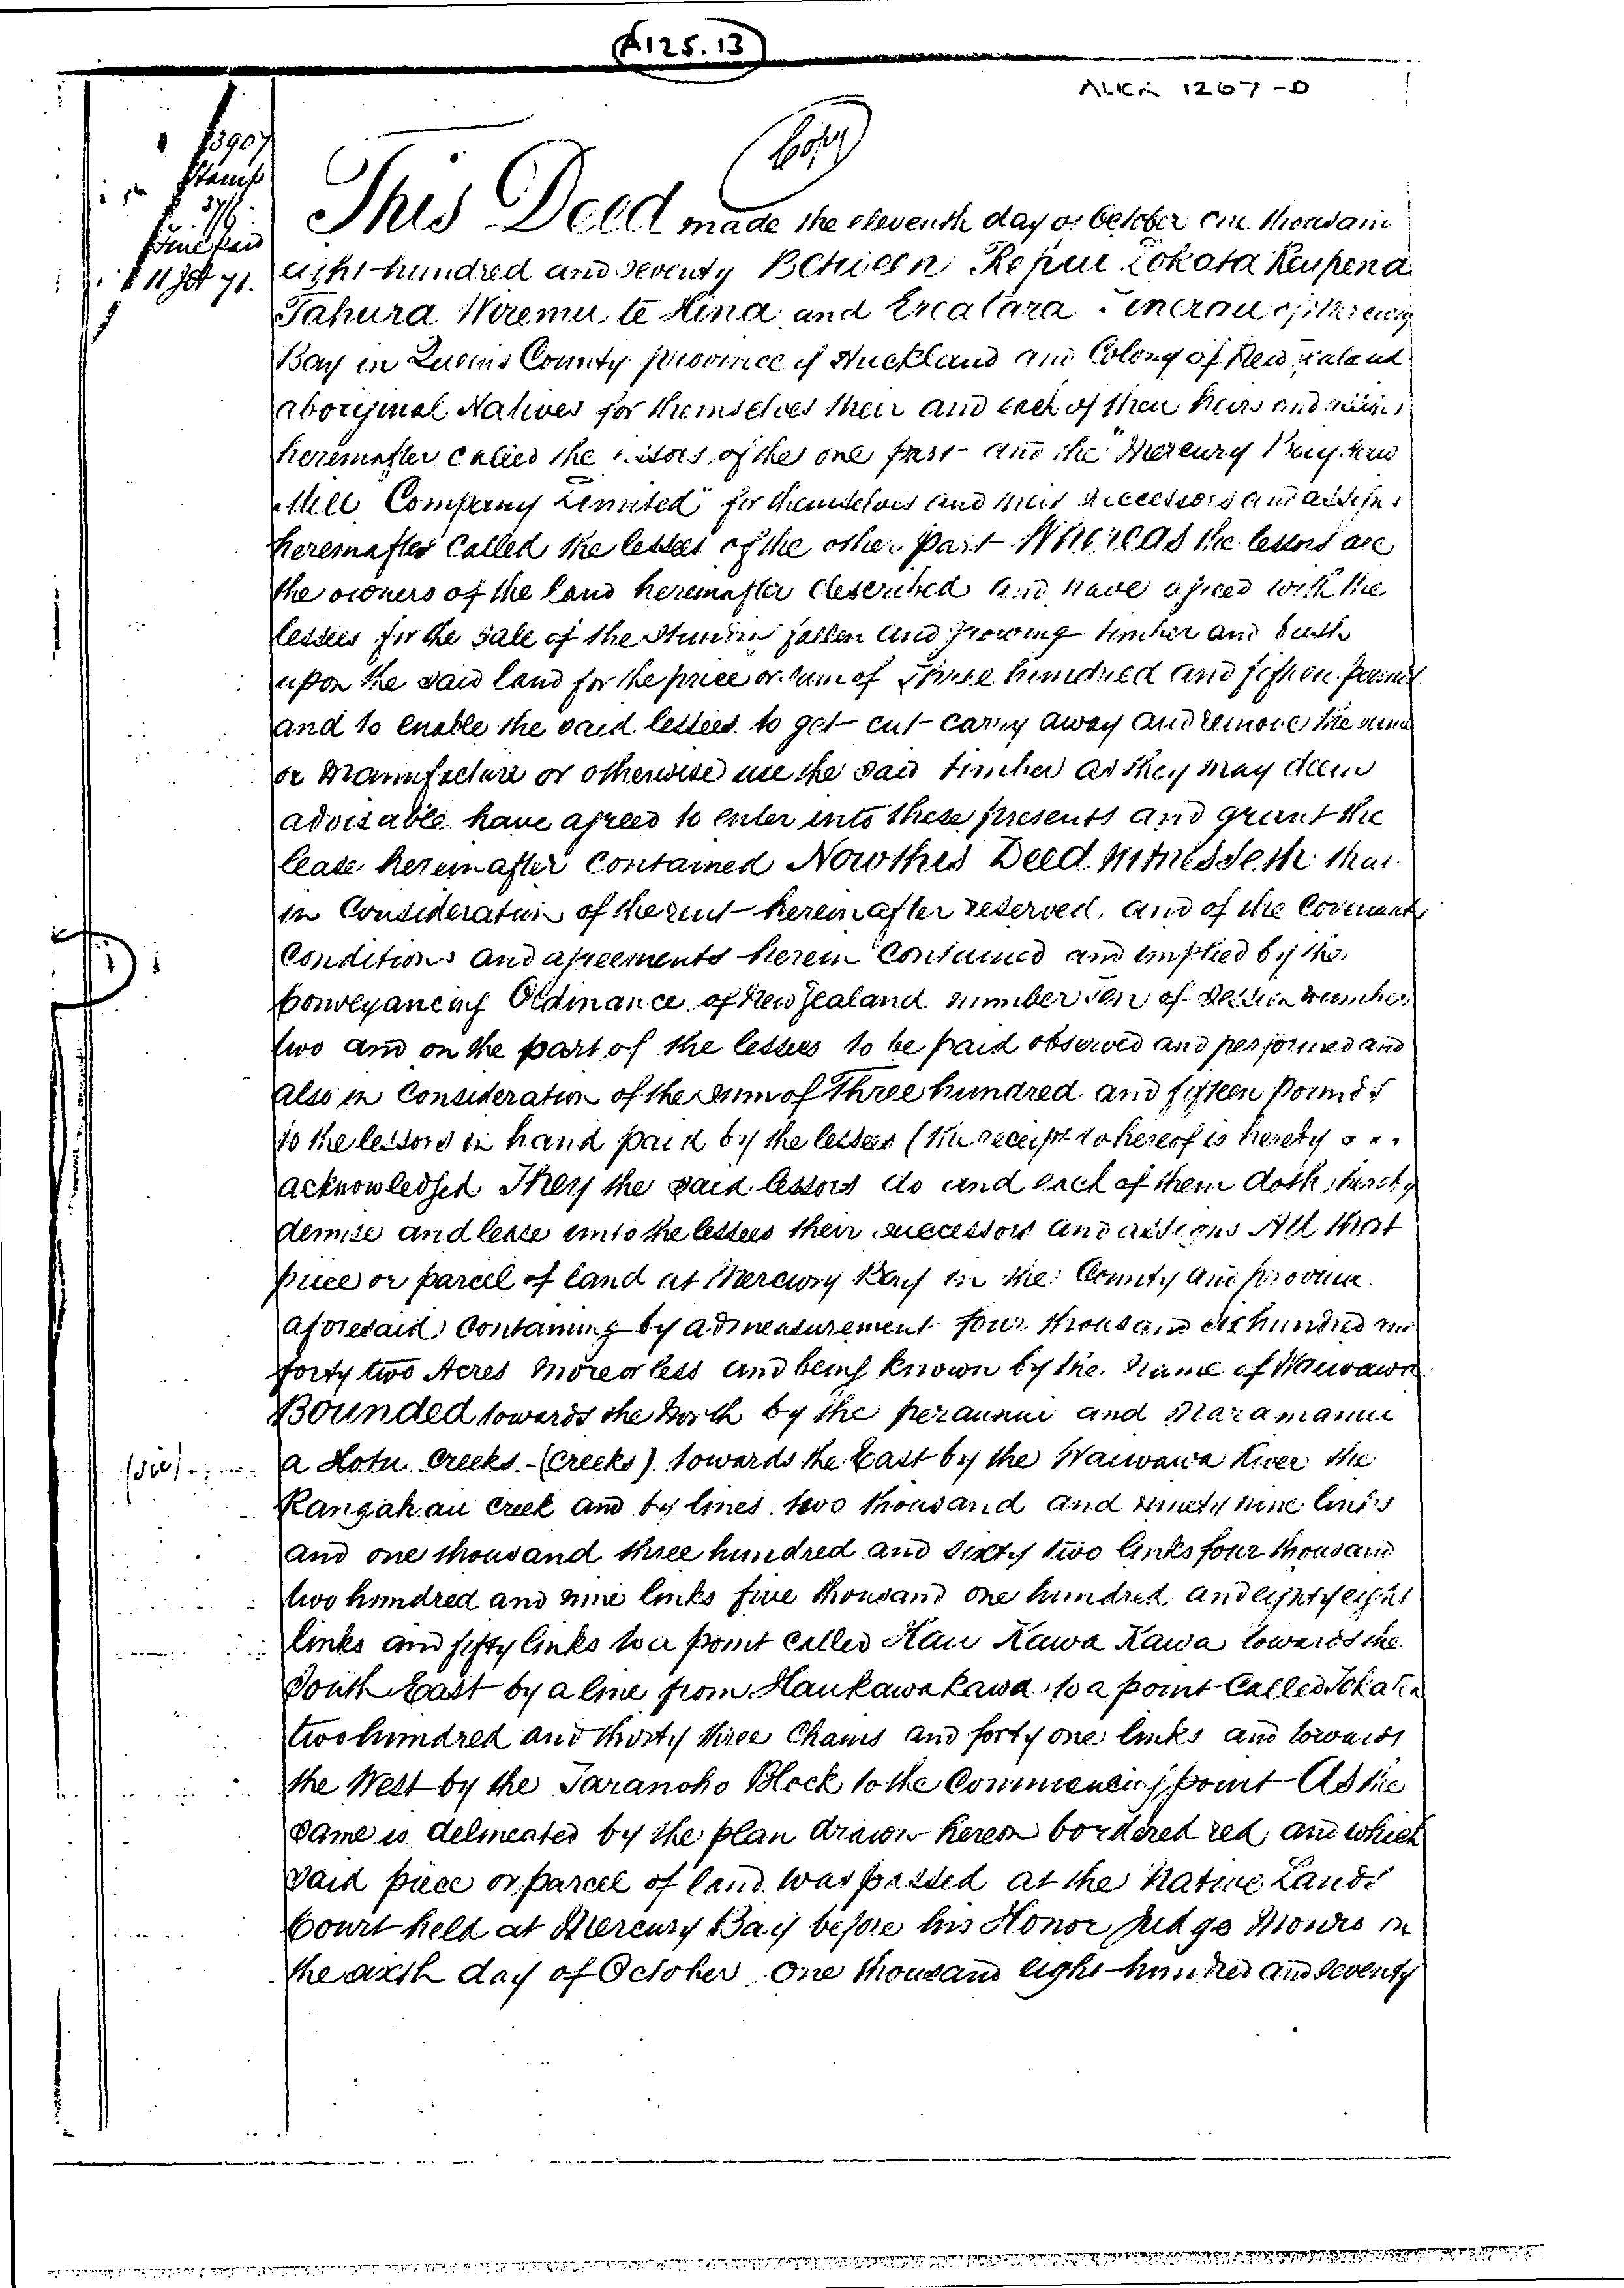 A125.13
1267-D
Copy
Stamp
11 Oct 71.
This Deed made the eleventh day of October one thousand
eight hundred and seventy Between Repiu Tokata Reupena
Tahura Wiremu te Hina and of Mercury
Bay in Queens County province of Auckland and Colony of New Zealand
aboriginal Natives for themselves their and each of their heirs and assigns
hereinafter called the lessors of the one part and the "Mercury Bay Saw
Mill Company Limited" for themselves and their successors and assigns
hereinafter called the lessees of the other part Whereas the lessors are
the owners of the land hereinafter described and have agreed with the
lessees for the sale of the standing fallen and growing timber and bush
upon the said land for the price or sum of Three hundred and fifteen pounds
and to enable the said lessees to get cut carry away and remove the same
or manufacture or otherwise use the said timber as they may deem
advisable have agreed to enter into these presents and grant the
lease hereinafter contained Now this Deed Witnesseth that
in Consideration of the rent hereinafter reserved and of the Covenants
Conditions and agreements herein contained and implied by the
Conveyancing Ordinance of New Zealand number ten of Session number
two and on the part of the lessees to be paid observed and performed and
also in Consideration of the sum of Three hundred and fifteen pounds
to the lessors in hand paid by the lessees (the receipt whereof is hereby
acknowledged They the said lessors do and each of them doth hereby
demise and lease unto the lessees their successors and assigns All that
piece or parcel of land at Mercury Bay in the County and province
aforesaid Containing by admeasurement four thousand six hundred and
forty two Acres more or less and being known by the name of Waiwawa
Bounded towards the North by the and
a Hotu Creeks (Creeks) towards the East by the Waiwawa River the
Rangahau Creek and by lines two thousand and ninety nine links
and one thousand three hundred and sixty two links four thousand
two hundred and nine links five thousand one hundred and eighty eight
links and fifty links to a point called Hau Kawa Kawa towards the
South East by a line from Haukawakawa to a point Called
two hundred and thirty three Chains and forty one links and towards
the West by the Taranoho Block to the Commencing point As the
same is delineated by the plan drawn hereon bordered red and which
said piece or parcel of land was passed at the Native Lands
Court held at Mercury Bay before his Honor Judge Monro on
the sixth day of October One thousand eight hundred and seventy